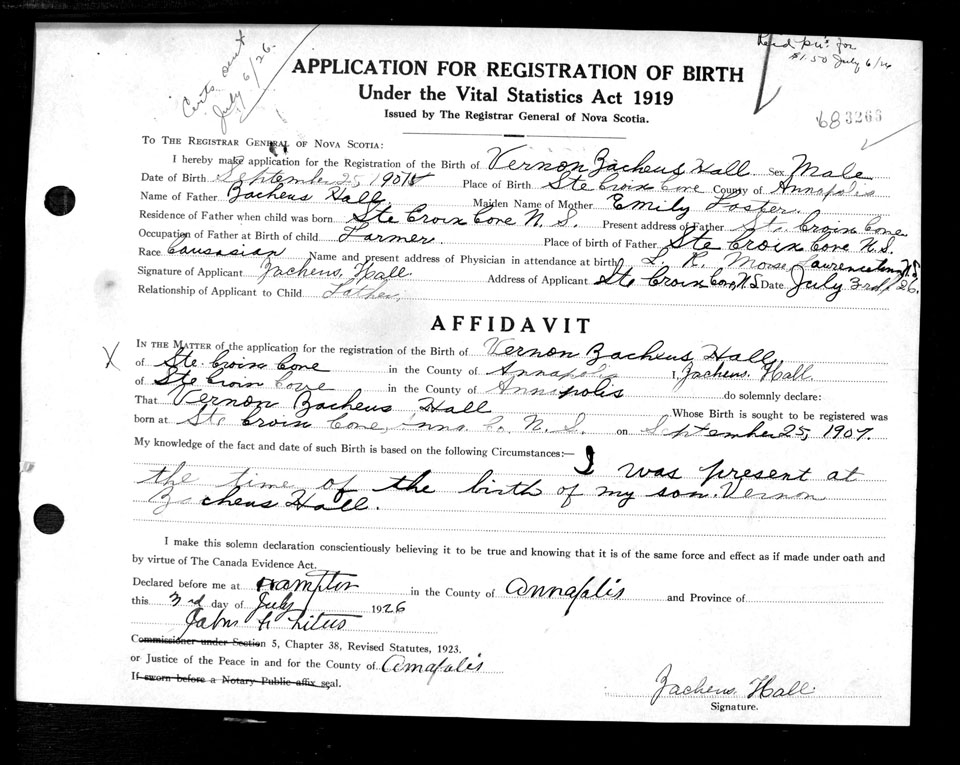 Certs sent
July 6/26.
$1.50 July 6/26
683263
APPLICATION FOR REGISTRATION OF BIRTH
Under the Vital Statistics Act 1919
Issued by The Registrar General of Nova Scotia.
TO THE REGISTRAR GENERAL OF NOVA SCOTIA:
I hereby make application for the Registration of the Birth of Vernon Zacheus Hall. Sex Male
Date of Birth September 25, 1907 Place of Birth Ste Croix Cove County of Annapolis
Name of Father Zacheus Hall. Maiden Name of Mother Emily Foster.
Residence of Father when child was born Ste Croix Cove N. S. Present address of Father St. Croix Cove
Occupation of Father at Birth of child Farmer. Place of birth of Father Ste Croix Cove N.S.
Race Causasian Name and present address of Physician in attendance at birth L. R. Morse Lawrencetown N.S
Signature of Applicant Zacheus. Hall Address of Applicant Ste Croix Cove, N.S Date July 3rd/26.
Relationship of Applicant to Child Father,
AFFIDAVIT
X IN THE MATTER of the application for the registration of the Birth of Vernon Zacheus Hall,
of Ste. Croix Cove in the County of Annapolis I, Zacheus. Hall
of Ste Croix Cove in the County of Annapolis do solemnly declare:
That Vernon Zacheus Hall Whose Birth is sought to be registered was
born at Ste Croix Cove, Anna Co. N. S. on September 25, 1907.
My knowledge of the fact and date of such Birth is based on the following Circumstances:— I was present at
the time of the birth of my son. Vernon
Zacheus Hall.
I make this solemn declaration conscientiously believing it to be true and knowing that it is of the same force and effect as if made under oath and
by virtue of The Canada Evidence Act.
Declared before me at Hampton in the County of Annapolis and Province of
this 3rd day of July 1926
John Titus
Commissioner under Section 5, Chapter 38, Revised Statutes, 1923.
or Justice of the Peace in and for the County of Annapolis
If sworn before a Notary Public affix seal.
Zacheus. Hall
Signature.